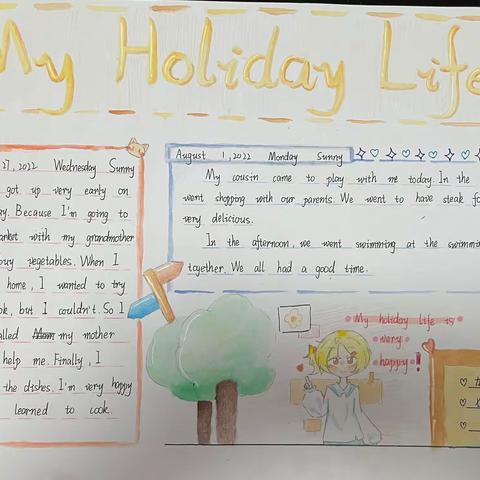 My Holiday Life
27,2022 Wednesday Sunny
got up very early on
Because I'm going to
with my grandmother
buy vegetables. When I
home, I wanted to try
but I couldn't. So I
my mother
help me. Finally, I
the dishes. I'm very happy
learned to cook.
August 1,2022 Monday Sunny
My cousin came to play with me today. In the
went shopping with our parents. We went to have steak
very delicious.
In the afternoon, we went swimming at the
together. We all had a good time.
My holiday life is
very
happy!